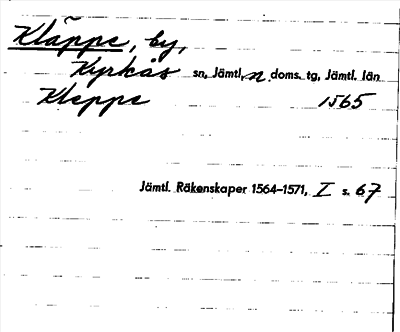 Kläppe, by,
Kyrkås sn, Jämtl, n doms. tg, Jämtl. län
Kleppe 1565
Jämtl. Räkenskaper 1564–1571, I s. 67